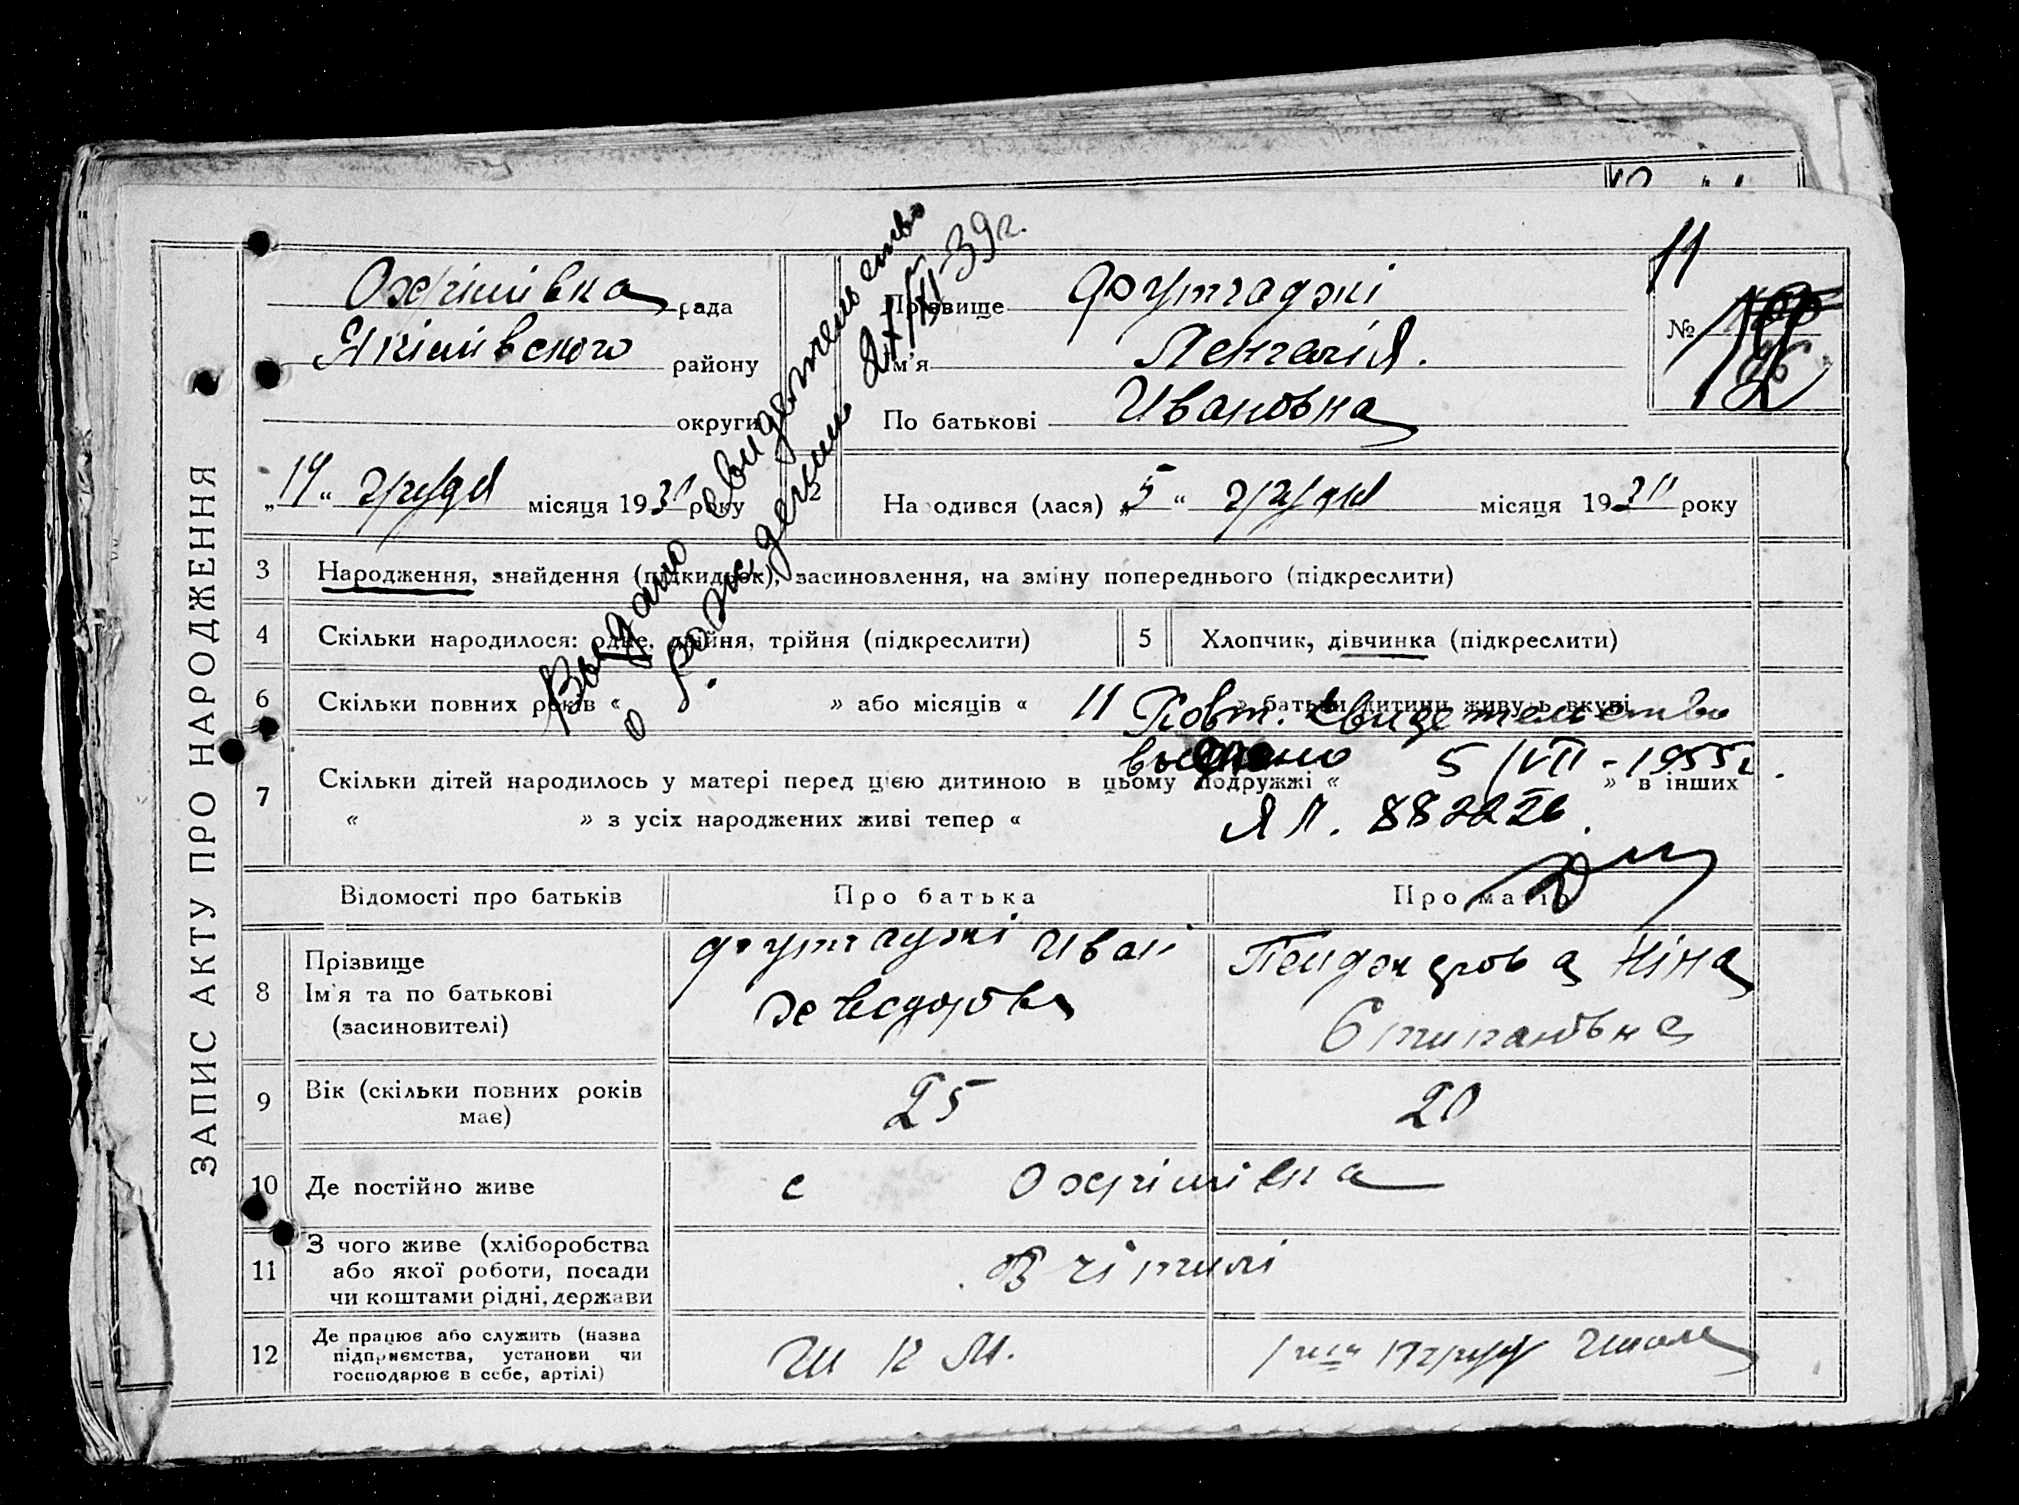 ЗАПИС АКТУ ПРО НАРОДЖЕННЯ
Охрімівка рада
Якімівського району
округи
„19“ грудня місяця 1931 року
2
Прізвище Футгаджі
Ім'я
По батькові Ивановна
11
№
Народився (лася) „5“ грудня місяця 1931 року
Выдано свидетельство
о рождении 21/XII-39г.
3 Народження, знайдення (підкидьок), засиновлення, на зміну попереднього (підкреслити)
4 Скільки народилося: одне, двійня, трійня (підкреслити)
5 Хлопчик, дівчинка (підкреслити)
6 Скільки повних років « » або місяців « 11 » батьки дитини живуть вкупі
Повт. свидетельство
выдано 5/VII-1955г.
ЯЛ. 882226.
7 Скільки дітей народилось у матері перед цією дитиною в цьому подружжі « » в інших
« » з усіх народжених живі тепер «
Відомості про батьків
Про батька
Про матір
8 Прізвище
Ім'я та по батькові
(засиновителі)
Футгаджі Иван
Нина
9 Вік (скільки повних років
має)
25
20
10 Де постійно живе
с Охрімівка
11 З чого живе (хліборобства
або якої роботи, посади
чи коштами рідні, держави
Вчітилі
12 Де працює або служить (назва
підприємства, установи чи
господарює в себе, артілі)
ШКМ.